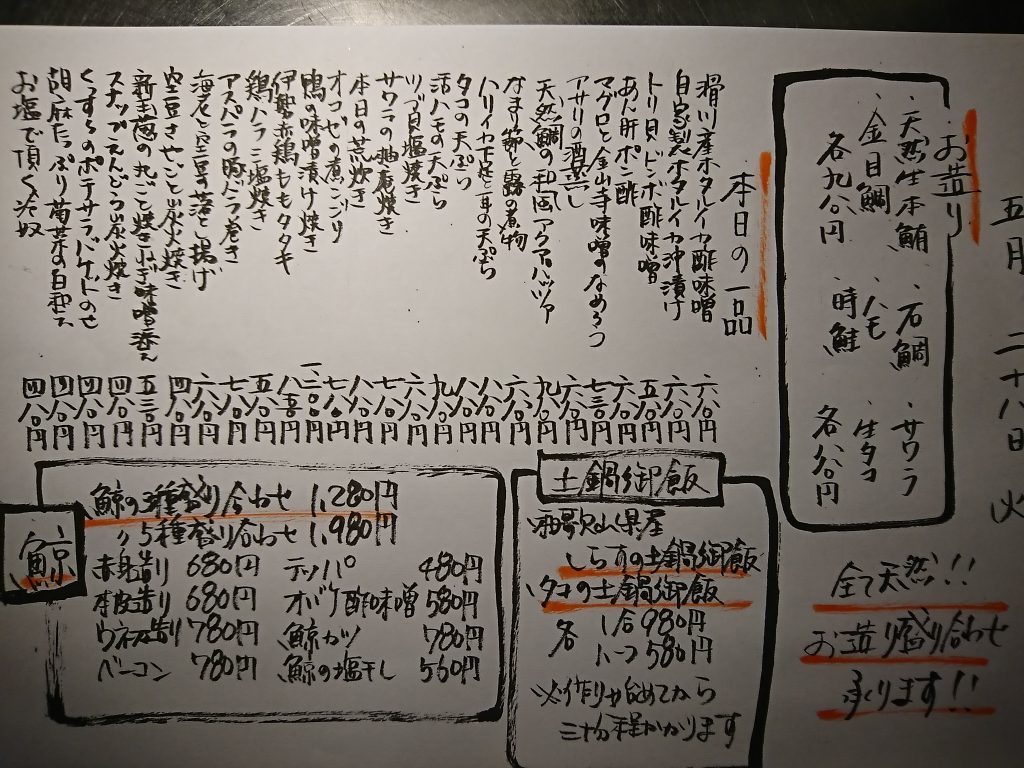 五月二十八日 火
お造り
・天然生本鮪 ・石鯛 ・サワラ
・金目鯛 ・ハモ ・生タコ
各九八〇円 時鮭 各八〇円
全て天然!!
お造り盛り合わせ
承ります!!
本日の一品
滑川産ホタルイカ酢味噌 六八〇円
自家製ホタルイカ沖漬け 六八〇円
トリ貝トンボ酢味噌 五八〇円
あん肝ポン酢 六八〇円
マグロと金山寺味噌のなめろう 七三〇円
アサリの酒蒸し 六八〇円
天然鯛の和風アクアパッツァ 九八〇円
なまり節と蕗の煮物 六八〇円
ハリイカ下足と耳の天ぷら 八八〇円
タコの天ぷら 八八〇円
活ハモの天ぷら 九八〇円
ツブ貝塩焼き 六八〇円
サワラの柚庵焼き 八八〇円
本日の荒炊き 八八〇円
オコゼの煮こごり 七八〇円
鴨の味噌漬け焼き 一二〇〇円
伊勢赤鶏ももタタキ 八五〇円
鶏ハラミ塩焼き 五八〇円
アスパラの豚バラ巻き 七八〇円
海老と空豆の落とし揚げ 六八〇円
空豆さやごと炭火焼き 四八〇円
新玉葱の丸ごと焼きふき味噌添え 五三〇円
スナップえんどう炭火焼き 四八〇円
くんすうのポテサラバケットのせ 四八〇円
胡麻たっぷり菊芽の白和え 四八〇円
お塩で頂く冷奴 四八〇円
土鍋御飯
・和歌山県産
しらすの土鍋御飯
・タコの土鍋御飯
各 1合 980円
ハーフ 580円
※作り始めてから
三十分程かかります
鯨
鯨の3種盛り合わせ 1,280円
〃5種盛り合わせ 1,980円
赤身造り 680円 テッパ 480円
本皮造り 680円 オバケ酢味噌 580円
ウネス造り 780円 鯨カツ 780円
ベーコン 780円 鯨の塩干し 560円